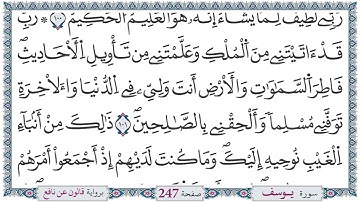 رَبِّے لَطِيفٞ لِّمَا يَشَآءُ اِ۪نَّهُۥ هُوَ اَ۬لْعَلِيمُ اُ۬لْحَكِيمُۖ ١٠٠ ۞ رَبِّ
قَدَ اٰتَيْتَنِے مِنَ اَ۬لْمُلْكِ وَعَلَّمْتَنِے مِن تَأْوِيلِ اِ۬لْأَحَادِيثِۖ
فَاطِرَ اَ۬لسَّمَٰوَٰتِ وَالْأَرْضِ أَنتَ وَلِيِّۦ فِے اِ۬لدُّنْيَا وَالْأٓخِرَةِۖ
تَوَفَّنِے مُسْلِماٗ وَأَلْحِقْنِے بِالصَّٰلِحِينَۖ ١٠١ ذَٰلِكَ مِنَ اَنۢبَآءِ
اِ۬لْغَيْبِ نُوحِيهِ إِلَيْكَۖ وَمَا كُنتَ لَدَيْهِمُ إِذَ اَجْمَعُواْ أَمْرَهُمْ
سورة يوسف صفحة 247 برواية قالون عن نافع